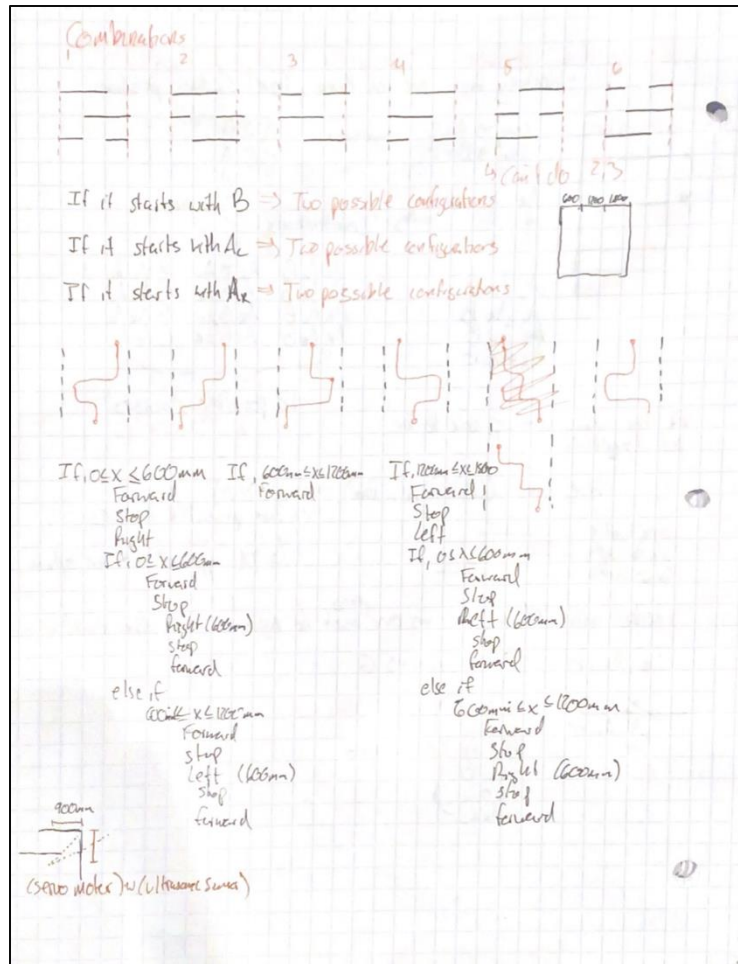 Combinations
2 3 4 5 6
↳ Can't do 2,3
If it starts with B => Two possible configurations
600
If it starts with AL => Two possible configurations
If it starts with AR => Two possible configurations
If, 0≤x≤600mm
Forward
Stop
Right
If, 0≤x≤600mm
Forward
Stop
Right (600mm)
Stop
forward
else if
600mm≤x≤1200mm
Forward
stop
Left (600mm)
Stop
forward
If, 600mm≤x≤1200mm
Forward
If, 1200mm≤x≤1800
Forward
Stop
Left
If, 0≤x≤600mm
Forward
Stop
Left (600mm)
stop
forward
else if
600mm≤x≤1200mm
Forward
Stop
Right (600mm)
stop
forward
900mm
(servo motor) w (ultrasonic sensor)